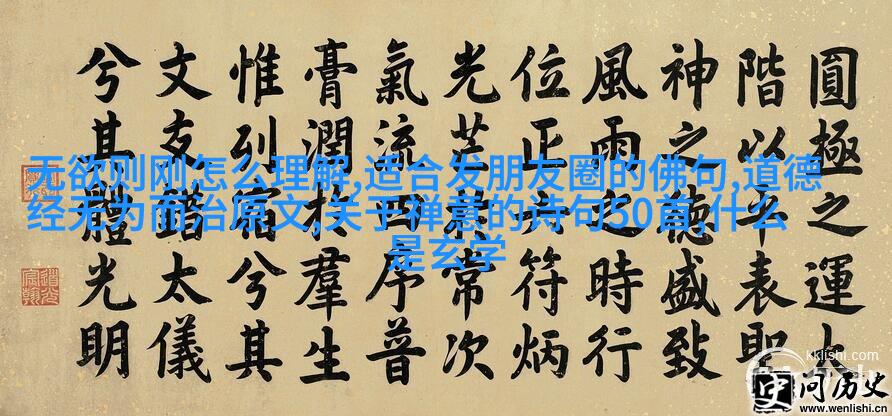 圓極之運
階以平表
神之德盛致
風雨之時行
位正六符炳
光芒常次
氣流四序普
膏潤於羣生
惟列宿兮其
文太儀
兮其體光明
无欲则刚怎么理解,适合发朋友圈的佛句,道德
经无为而治原文,关于禅意的诗句50首,什么
是玄学
kklishi.com
问历史
www.wenlishi.cn